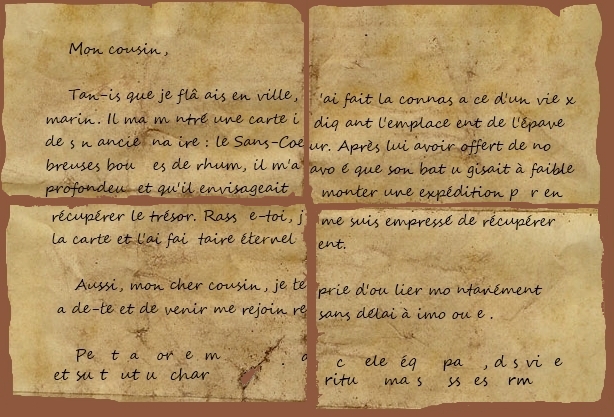 Mon cousin,
Tan-is que je flâ ais en ville, 'ai fait la connas a ce d'un vie x
marin. Il ma m ntré une carte i diq ant l'emplace ent de l'épave
de s n ancie na ire : le Sans-Coeur. Après lui avoir offert de no
breuses bou es de rhum, il m'a avo é que son bat u gisait à faible
profondeu et qu'il envisageait monter une expédition p r en
récupérer le trésor. Rass e-toi, j me suis empressé de récupérer
la carte et l'ai fai taire éternel ent.
Aussi, mon cher cousin, je te prie d'ou lier mo ntanément
a de-te et de venir me rejoin re sans délai à imo ou e.
Pe t a or e m a c ele éq pa , d s vi e
et su t ut u char ritu ma s ss es rm